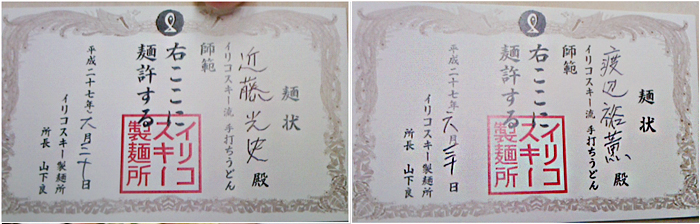 麺状
近藤光史 殿
イリコスキー流 手打ちうどん
師範
右ここに
麺許する
平成二十七年六月二十日
イリコスキー製麺所
所長 山下良
イリコ
スキー
製麺所
麺状
渡辺祐薫 殿
イリコスキー流 手打ちうどん
師範
右ここに
麺許する
平成二十七年六月二十日
イリコスキー製麺所
所長 山下良
イリコ
スキー
製麺所